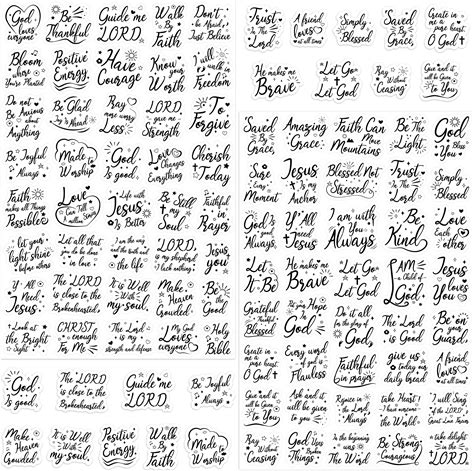 God
loves
everyone
Be
Thankful
Guide me
LORD,
Walk
By
Faith
Don't
Be Afraid
Just Believe
Bloom
where
You're Planted
Positive
Energy.
Have
Courage
Know
your
Worth
I will
walk by
Freedom
Do not
Be Anxious
about
Anything
Be Glad
Joy is Ahead
Pray
more
worry
Less
LORD,
give me
Strength
To
Forgive
Be Joyful
Always
Made
To
Worship
God
Is
good.
Love
Changes
Everything
Cherish
Today
Faith
makes all Things
Possible
Love
Life with
Jesus
Is Better
Be
Still
my
Soul
Faithful
in
Prayer
let your
light shine
before others
Let all that
you do
be done
in Love
I am the way
and the truth and
the life
The LORD is
my shepherd
I lack nothing
Jesus
loves
you
Y'All
Need
Jesus.
The LORD
is close to the
Brokenhearted.
It is
Well With
my Soul.
Make
Heaven
Crowded.
Pray
Bigger
Look at
the Bright
Sight
CHRIST
is
enough
For Me
The Lord
is my
strength and defense
My God
Loves
Everyone
Holy
Bible
God
Is
good.
The LORD
is close to the
Brokenhearted.
Guide me
LORD,
Be Joyful
Always
Make
Heaven
Crowded.
It is
Well With
my Soul.
Positive
Energy.
Walk
By
Faith
Made
To
Worship
Trust
In The
Lord
A friend
loves
at all times
Simply
Blessed
Saved
By
Grace,
Create in
me a
pure heart,
O God
He makes me
Brave
Let Go
Let God
Pray
Without
Ceasing
Give and it
will be
Given
to You
Saved
By
Grace,
Amazing
Grace
Faith Can
Move
Mountains
Be
The
Light
God
loves
You
Every
Moment
Jesus
is my
Anchor
Blessed Not
Stressed
Trust
In The
Lord
Simply
Blessed
God is
good,
Always
Y'All
Need
Jesus
I am with
You
Always
Be
Kind
Love
Each
other
Let
It
Be
He makes me
Brave
Let Go
Let
God
I AM
a Child of
God.
A friend
loves
at all times
Grateful
Thankful
Blessed
Hope Is
In
God
Do it all
for the
glory of
God.
Let God
Be on
your
Guard
Create in
me a
pure heart,
O God
Everyone
Is Flawless
In
God
Faithful
in prayer
give us
today our
daily bread
Jesus
loves
you
Give and it
will be
Given
to You
Ask and it
will be
given to
you
Pray
Without
Ceasing
take heart
I have
overcome
The World
I will Sing
of the
LORD's
Great Love
Forever
Jesus
loves
you
God
Uses
Broken
Things
In the
beginning
was
the Word
Be
strong and
take heart
In
the
World